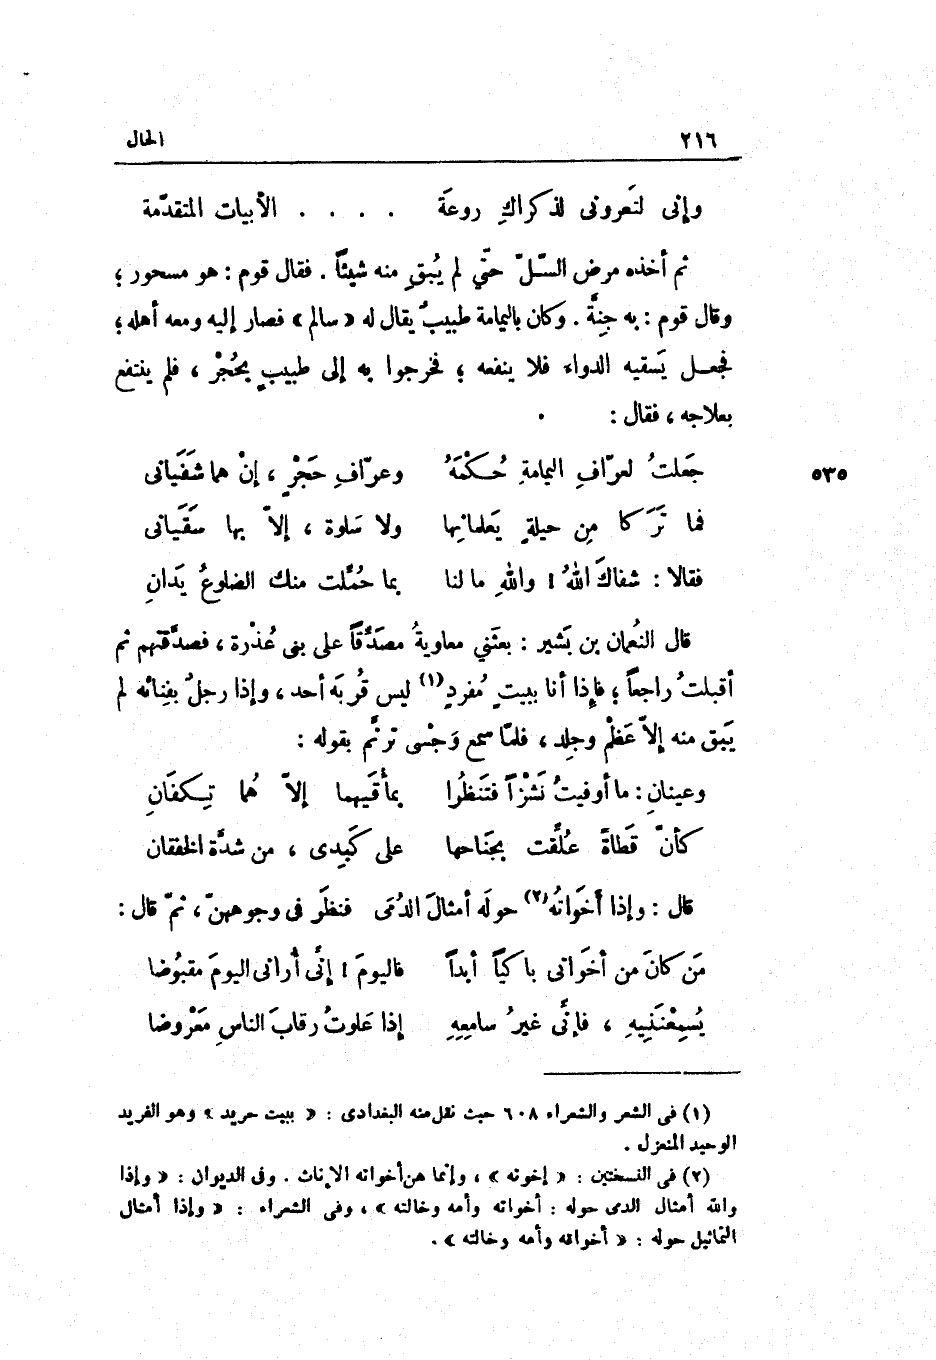 ٢١٦ الحال
وإنى لتَعرونى لذكراكِ روعَة . . . . الأبيات المتقدّمة
ثم أخذه مرض السّلّ حتّى لم يُبقِ منه شيئاً . فقال قوم : هو مسحور ؛
وقال قوم : به جنِّة . وكان باليمامة طبيبٌ يقال له « سالم » فصار إليه ومعه أهله ؛
فجعل يَسقيه الدواء فلا ينفعه ؛ فخرجوا به إلى طبيبٍ بحُجْر ، فلم ينتفع
بعلاجه ، فقال :
جَعلتُ لعرّافِ اليمامةِ حُكْمَهُ وعرّافِ حَجْرٍ ، إنْ هما شَفَيانى
٥٣٥
فما تَرَكا مِن حيلةٍ يَعلمانِها ولا سَلوة ، إلاّ بها سَقَيانى
فقالا : شفاكَ اللهُ ! واللهِ ما لنا بما حُمِّلت منك الضلوعُ يَدانِ
قال النُعمان بن بَشير : بعثَنى معاويةُ مصَدِّقاً على بنى عُذْرة ، فصدَّقتهم ثم
أقبلتُ راجعاً ؛ فإذا أنا ببيتٍ مُفردٍ (١) ليس قُربَه أحد ، وإذا رجلٌ بفِنائه لم
يَبق منه إلاّ عَظْم وجِلد ، فلمّا سمع وَجْسى ترنَّم بقوله :
وعينانِ : ما أوفيتُ نَشْزاً فتَنظُرا بمأقَيهما إلاّ هُما تِكفَانِ
كأنّ قَطاةً عُلِّقت بجَناحها على كَبِدى ، من شدَّة الخفقان
قال : وإذا أَخَواتُه (٢) حولَه أمثالَ الدُمَى فنظَر فى وجوههنّ ، ثمّ قال :
مَن كانَ من أخَواتى باكيًاً أبداً فاليومَ ! إنِّى أُرانى اليومَ مقبُوضا
يُسمِعْنَنِيهِ ، فإنِّى غيرُ سامِعِهِ إذا عَلوتُ رقابَ الناسِ مَعْروضا
(١) فى الشعر والشعراء ٦٠٨ حيث نقل منه البغدادى : « ببيت حريد » وهو الفريد
الوحيد المنعزل .
(٢) فى النسختين : « إخوته » ، وإنما هن أخواته الإناث . وفى الديوان : « وإذا
والله أمثال الدمى حوله : أخواته وأمه وخالته » ، وفى الشعراء : « وإذا أمثال
التماثيل حوله : « أخواته وأمه وخالته » .